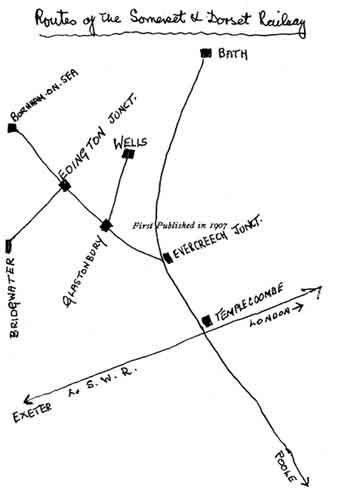 Routes of The Somerset & Dorset Railway
BATH
BURNHAM-ON-SEA
EDINGTON JUNCT.
WELLS
First Published in 1907
GLASTONBURY
EVERCREECH JUNCT.
BRIDGWATER
TEMPLECOOMBE
LONDON
L. S. W. R.
EXETER
POOLE